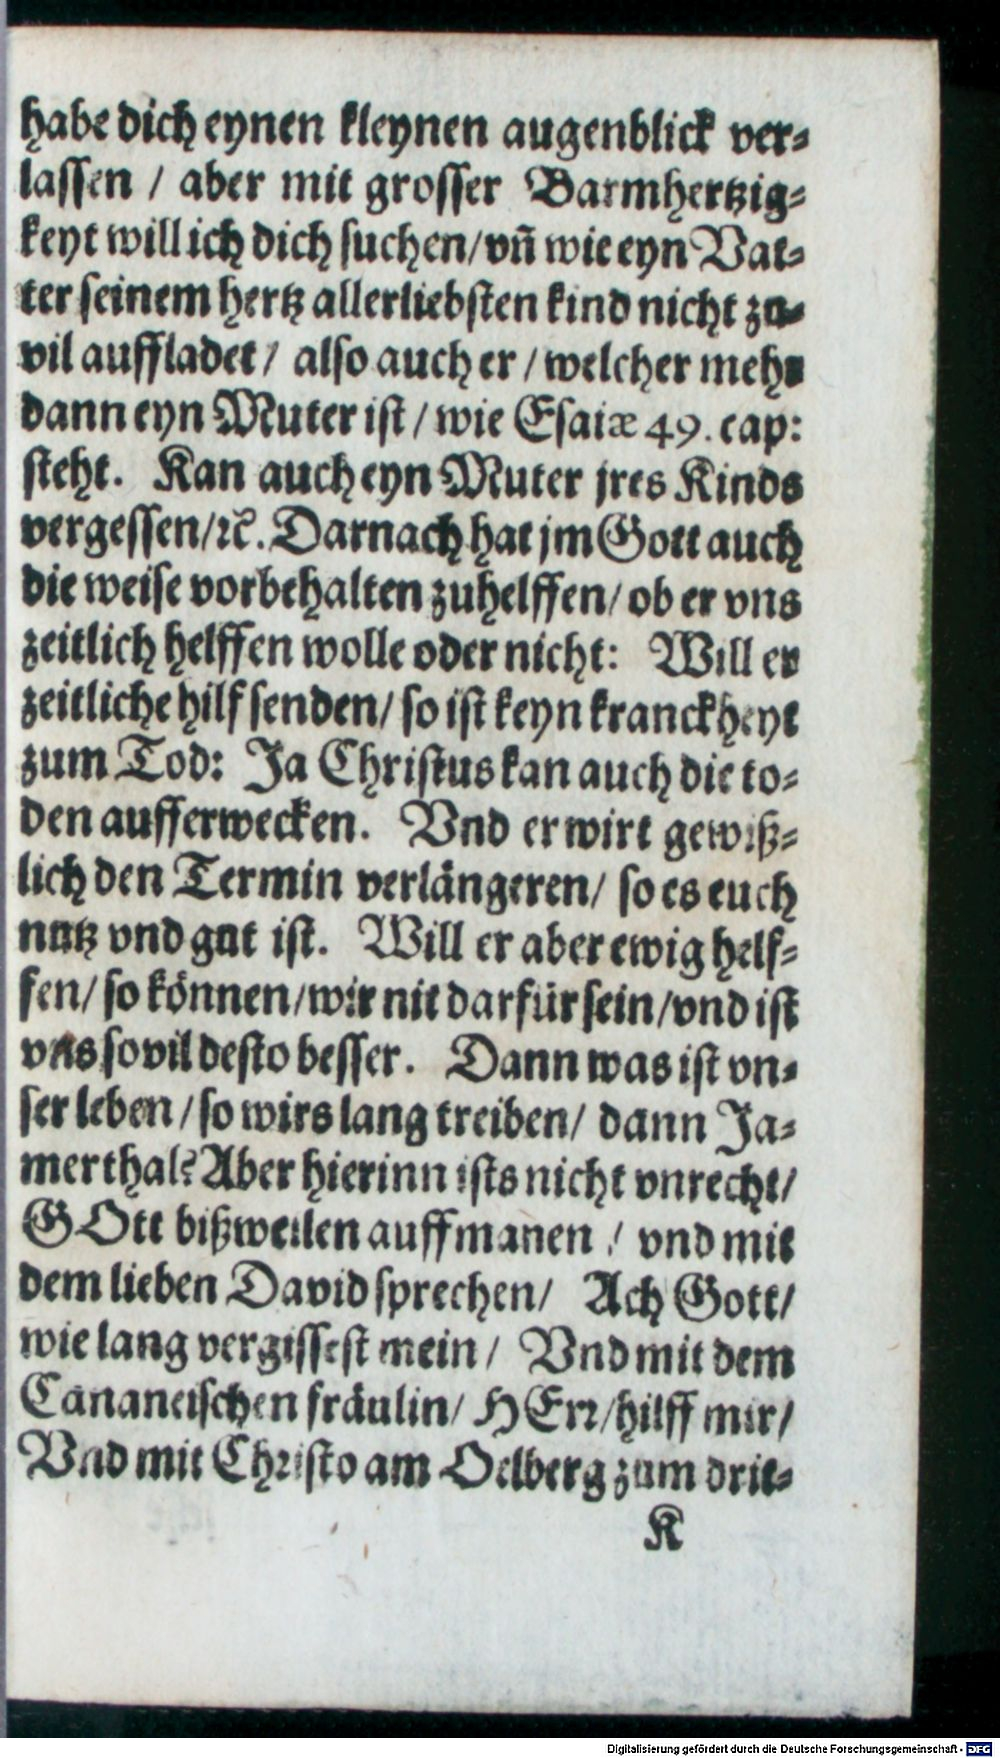 habe dich eynen kleynen augenblick ver⸗
lassen / aber mit grosser Barmhertzig⸗
keyt will ich dich suchen/ vñ wie eyn Vat⸗
ter seinem hertz allerliebsten kind nicht zu⸗
vil auffladet / also auch er / welcher mehr
dann eyn Muter ist / wie Esaiæ 49. cap:
steht. Kan auch eyn Muter jres Kinds
vergessen/ꝛc. Darnach hat jm Gott auch
die weise vorbehalten zuhelffen/ ob er vns
zeitlich helffen wolle oder nicht: Will er
zeitliche hilf senden/ so ist keyn kranckheyt
zum Tod: Ja Christus kan auch die to⸗
den aufferwecken. Vnd er wirt gewiß⸗
lich den Termin verlängeren/ so es euch
nutz vnd gut ist. Will er aber ewig helf⸗
fen/ so können/wir nit darfür sein/vnd ist
vns sovil desto besser. Dann was ist vn⸗
ser leben / so wirs lang treiben/ dann Ja⸗
merthal? Aber hierinn ists nicht vnrecht/
GOtt bißweilen auffmanen / vnd mit
dem lieben David sprechen/ Ach Gott/
wie lang vergissest mein / Vnd mit dem
Cananeischen fräulin/ HErꝛ/hilff mir/
Vnd mit Christo am Oelberg zum drit⸗
K
Digitalisierung gefördert durch die Deutsche Forschungsgemeinschaft - DFG